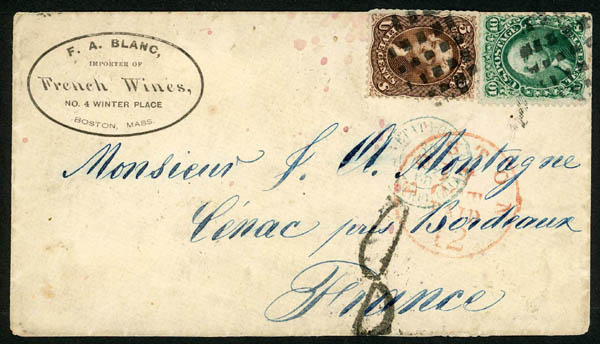 F. A. BLANC,
IMPORTER OF
French Wines,
NO. 4 WINTER PLACE
BOSTON, MASS.
Monsieur F. A. Montagne
Cénac près Bordeaux
France
8